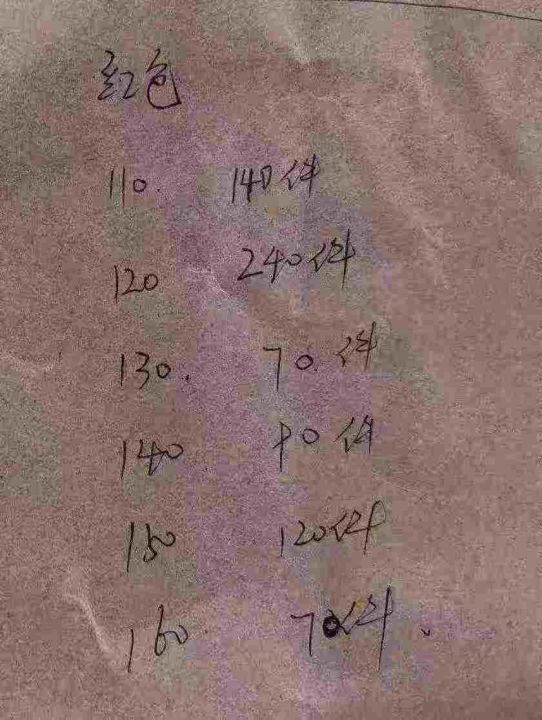 红色
110. 140件
120 240件
130. 70.件
140 90件
150 120件
160. 70件.